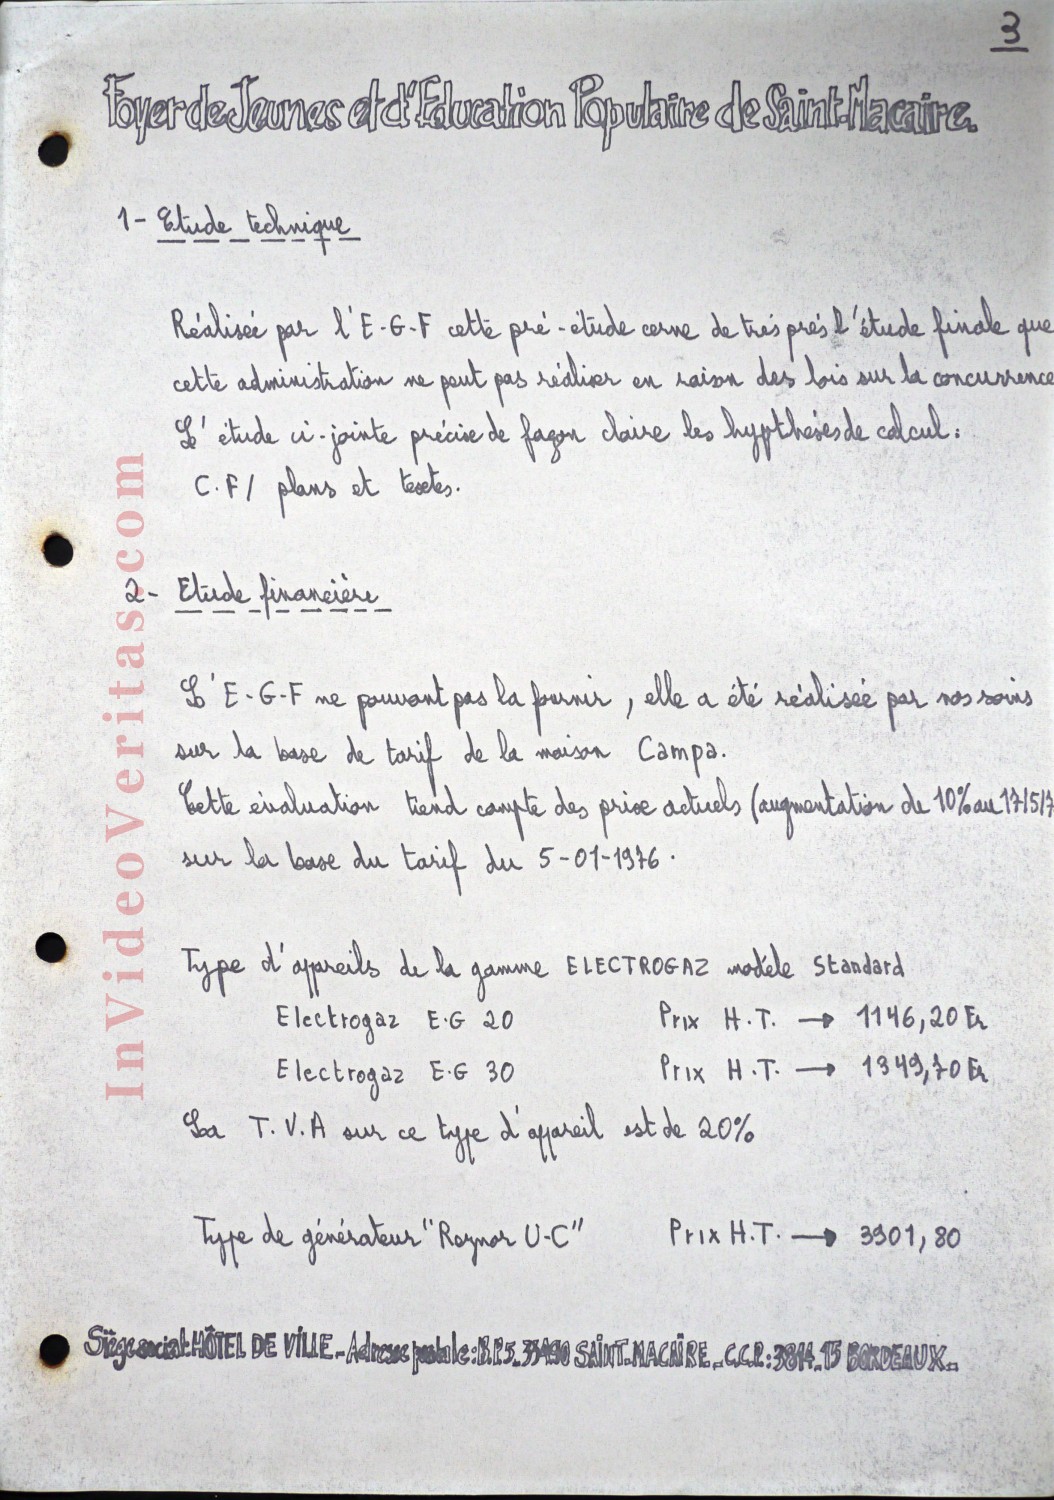 3
Foyer de Jeunes et d'Education Populaire de Saint-Macaire.
1- Etude technique
Réalisée par l'E-G-F cette pré-étude cerne de trés prés l'étude finale que
cette administration ne peut pas réaliser en raison des lois sur la concurrence
L'étude ci-jointe précise de façon claire les hypthèses de calcul:
C.F/ plans et textes.
2- Etude financière
L'E-G-F ne pouvant pas la fournir, elle a été réalisée par nos soins
sur la base de tarif de la maison Campa.
Cette évaluation tiend compte des prix actuels (augmentation de 10% au 17/5/7
sur la base du tarif du 5-01-1976.
Type d'appareils de la gamme ELECTROGAZ modéle Standard
Electrogaz E.G 20 Prix H.T. → 1146,20 Fr
Electrogaz E.G 30 Prix H.T. → 1349,70 Fr
La T.V.A sur ce type d'appareil est de 20%
Type de générateur "Reznor U-C" Prix H.T. → 3301,80
Siège social: HÔTEL DE VILLE - Adresse postale: B.P.5. 33490 SAINT-MACAIRE - C.C.P.: 3814-15 BORDEAUX.
InVideoVeritas.com